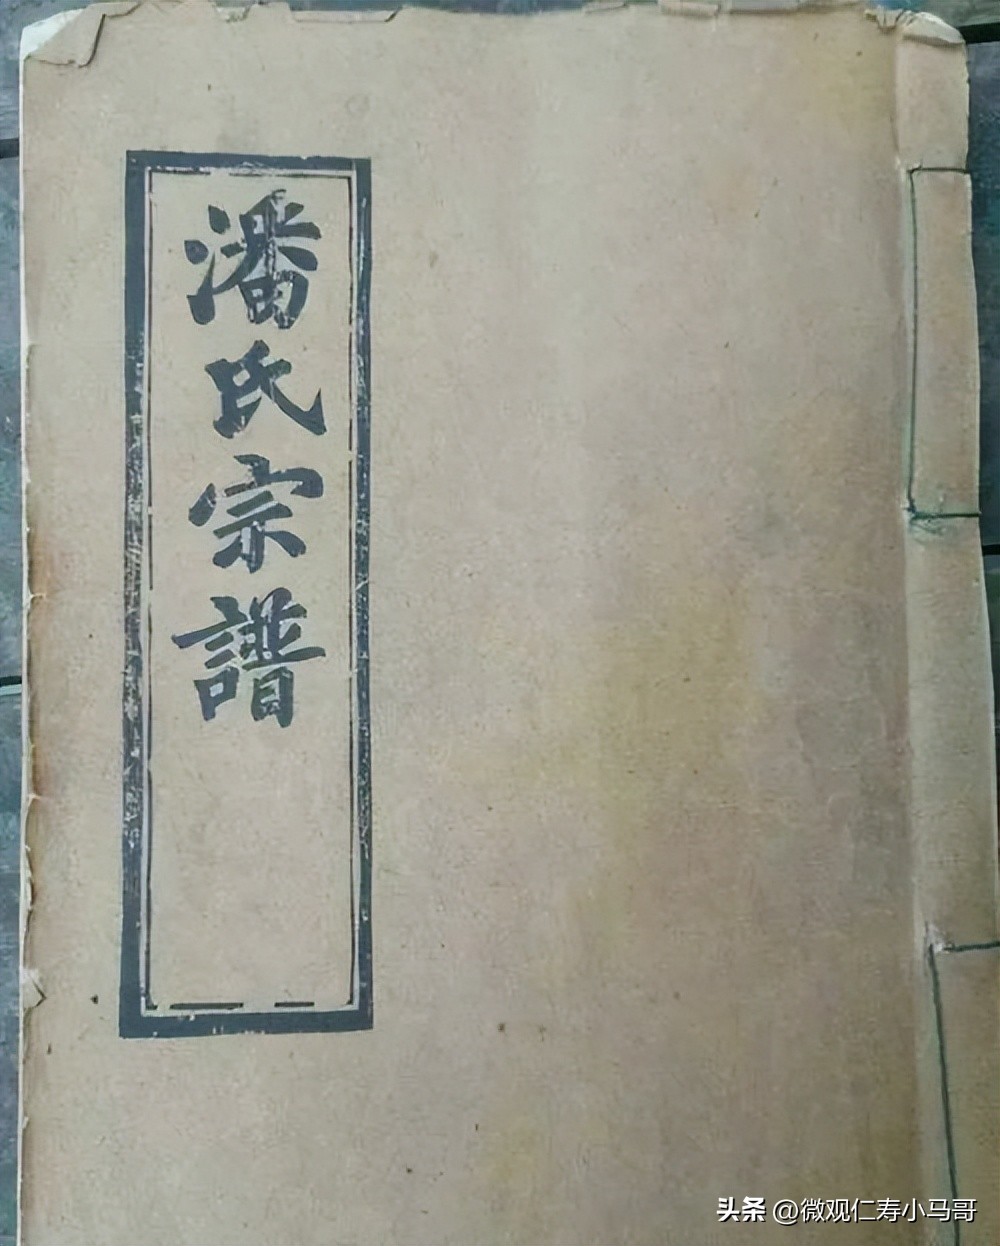 潘氏宗譜
头条 @微观仁寿小马哥